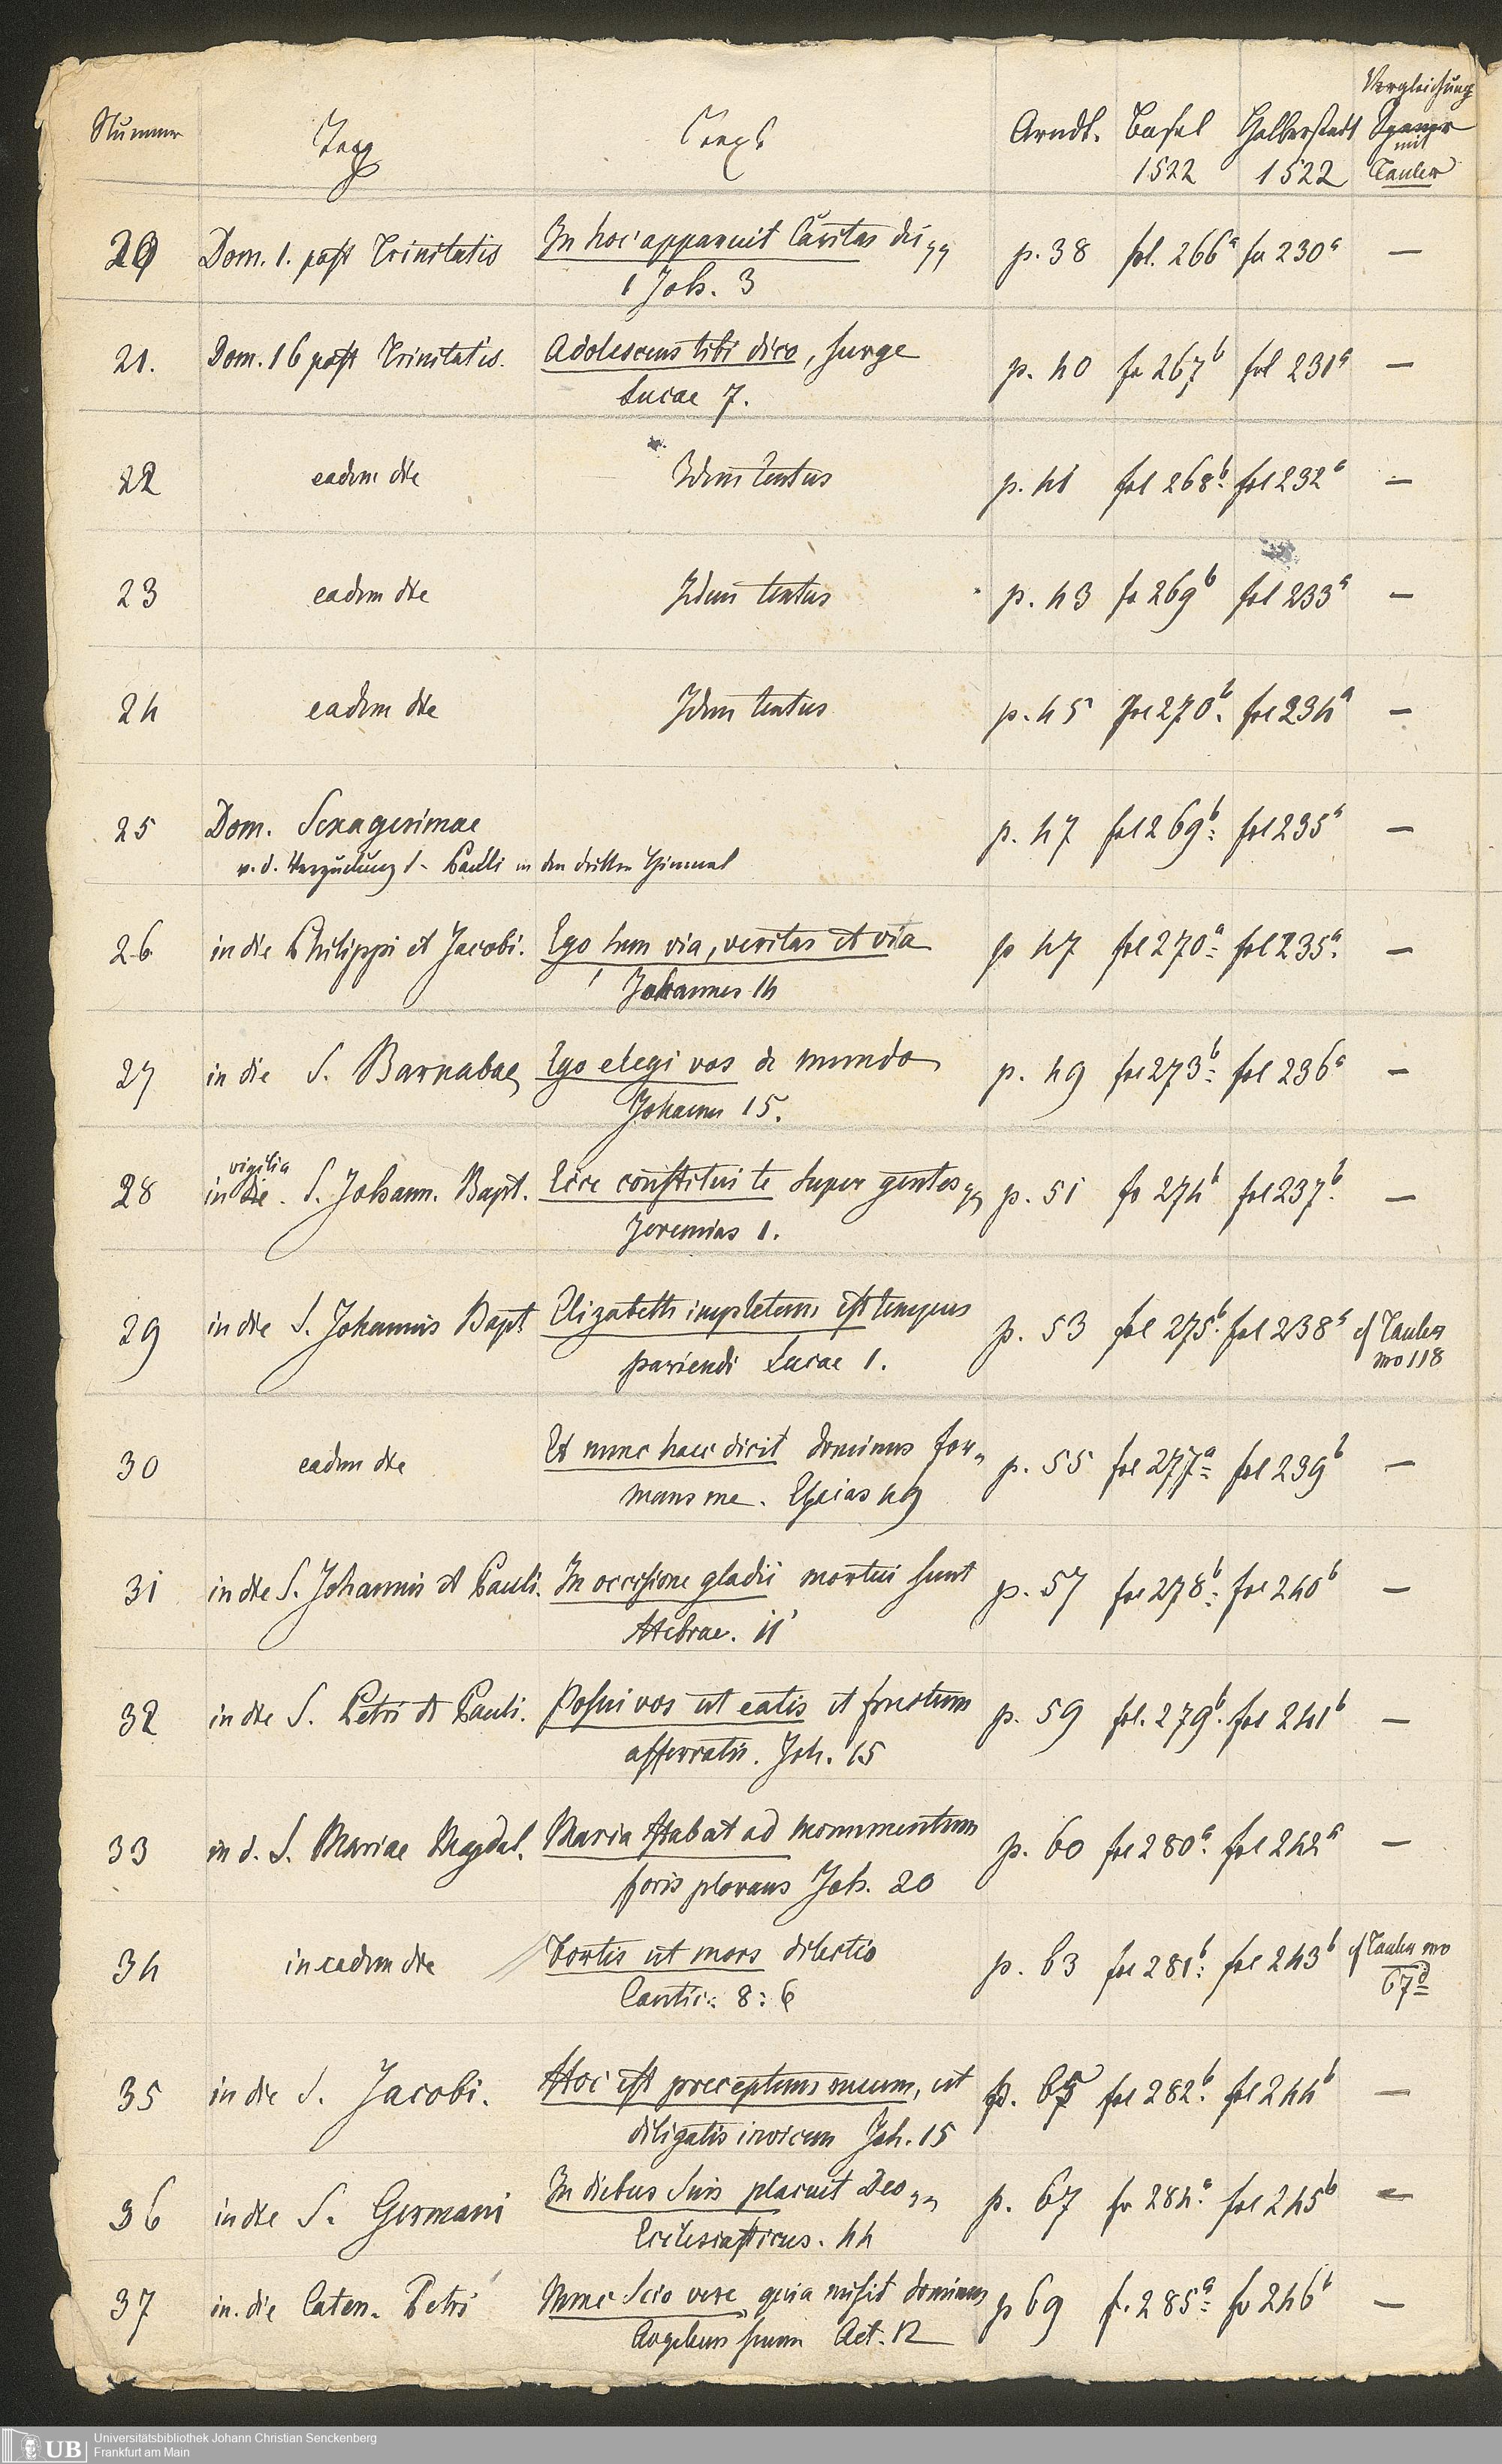 Nummer Tag Text Arndt. Basel 1522 Halberstadt 1522 Vergleichung mit Tauler
20 Dom. 1. post Trinitatis In hoc apparuit Caritas dei
1 Joh. 3 p. 38 fol. 266a fo 230a —
21. Dom. 16 post Trinitatis. Adolescens tibi dico, surge
Lucae 7. p. 40 fo 267b fol 231a —
22 eadem die Idem textus p. 41 fol 268b. fol 232a —
23 eadem die Idem textus p. 43 fo 269b fol 233a —
24 eadem die Idem textus p. 45 fol 270b. fol 234a —
25 Dom. Sexagesimae p. 47 fol 269b. fol 235a —
v. d. Verzückung S. Pauli in den dritten Himmel
26 in die Philippi et Jacobi. Ego sum via, veritas et vita
Johannes 14 p 47 fol 270a. fol 235a. —
27 in die S. Barnabae Ego elegi vos de mundo
Johann 15. p. 49 fol 273b. fol 236a —
vigilia
28 in die S. Johann. Bapt. Ecce constitui te super gentes
Jeremias 1. p. 51 fo 274b fol 237b. —
29 in die S. Johannis Bapt Elizabeth impletum est tempus
pariendi Lucae 1. p. 53 fol 275b. fol 238a cf Tauler no 118
30 eadem die Et nunc haec dicit dominus for-
mans me. Esaias 49 p. 55 fol 277a fol 239b —
31 in die S. Johannis et Pauli. In occisione gladii mortui sunt
Hebrae. 11 p. 57 fol 278b. fol 240b —
32 in die S. Petri et Pauli. Posui vos ut eatis et fructum
afferratis. Joh. 15 p. 59 fol. 279b. fol 241b —
33 in d. S. Mariae Magdal. Maria stabat ad monumentum
foris plorans Joh. 20 p. 60 fol 280a. fol 242a —
34 in eadem die Fortis ut mors dilectio
Cantic. 8:6 p. 63 fol 281b. fol 243b cf Tauler no 67d
35 in die S. Jacobi. Hoc est preceptum meum, ut
diligatis invicem Joh. 15 p. 65 fol 282b. fol 244b —
36 in die S. Germani In diebus suis placuit Deo
Ecclesiasticus. 44 p. 67 fo 284a. fol 245b —
37 in. die Caten. Petri Nunc scio vere quia misit dominus
Angelum suum Act. 12 p 69 f. 285a. fo 246b —
UB Universitätsbibliothek Johann Christian Senckenberg
Frankfurt am Main